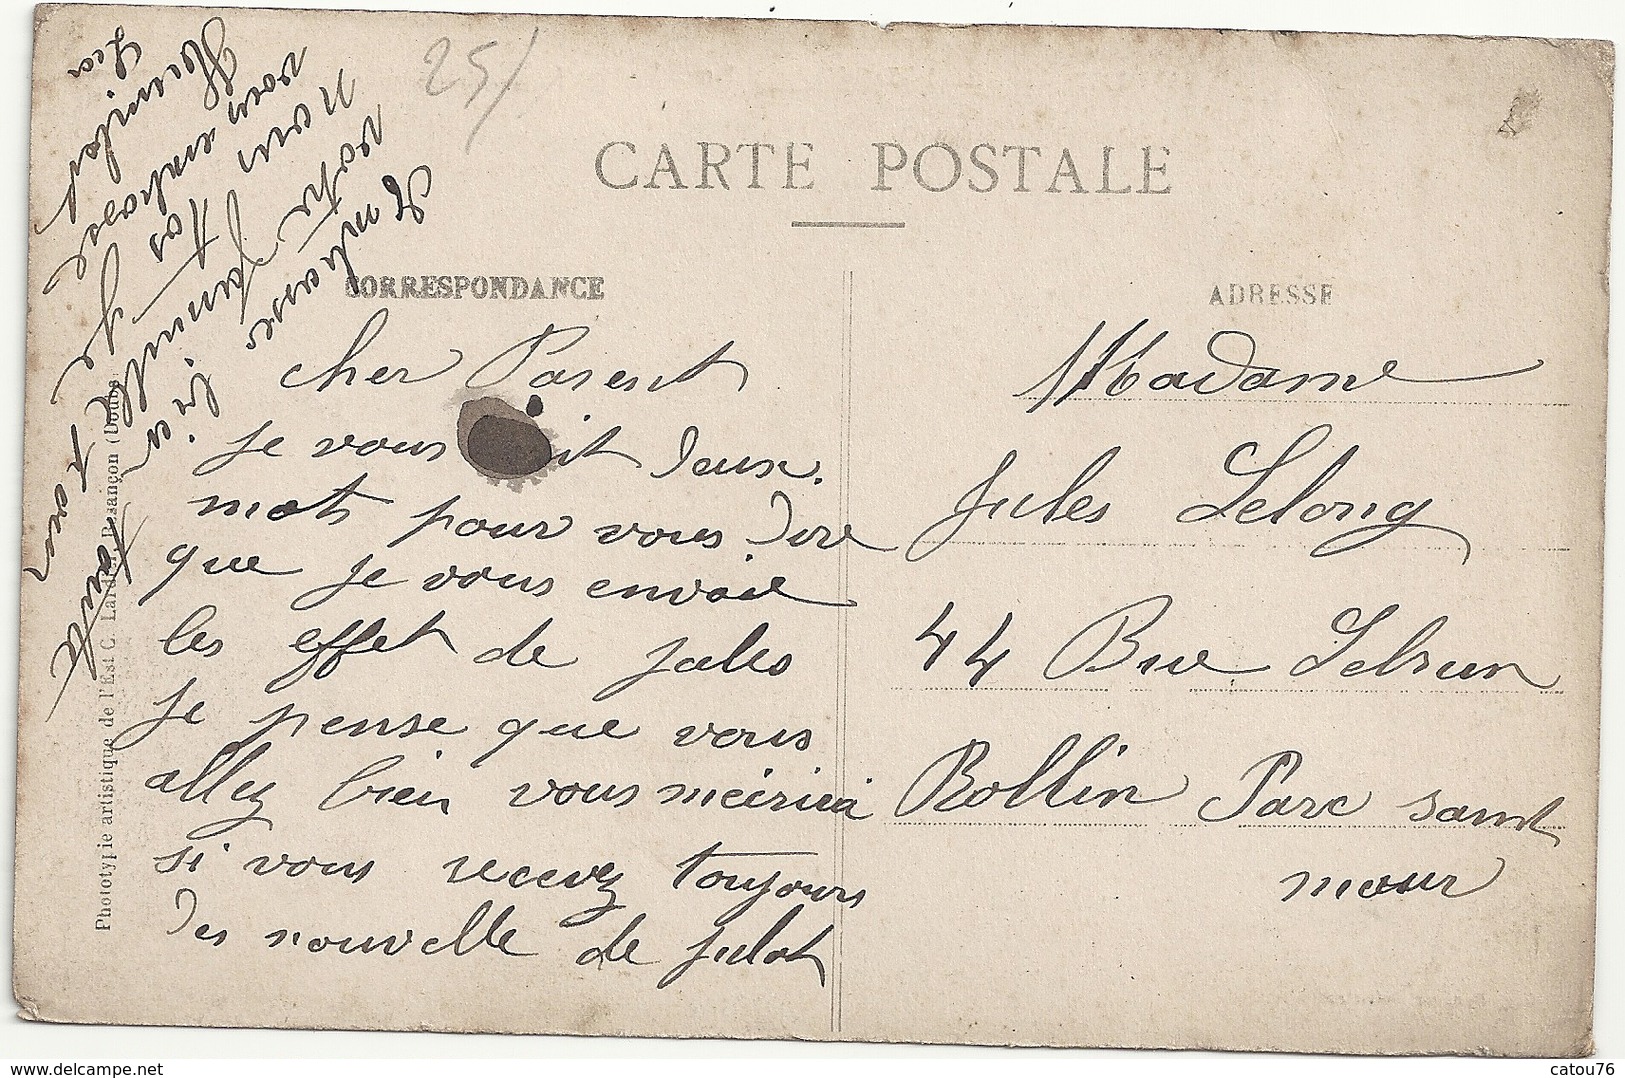 25/
CARTE POSTALE
CORRESPONDANCE
cher Parent
je vous it deux
mots pour vous dire
que je vous envoie
les effet de jules
je pense que vous
allez bien vous m'écrirai
si vous recevez toujours
des nouvelle de julot
Embrasse bien toute
votre famille pour
nous
vous embrasse
ADRESSE
Madame
Jules Lelong
44 Rue Lebrun
Rollin Parc saint
maur
Phototypie artistique de l'Est C. Lardier, Besançon (Doubs)
delcampe.net
catou76